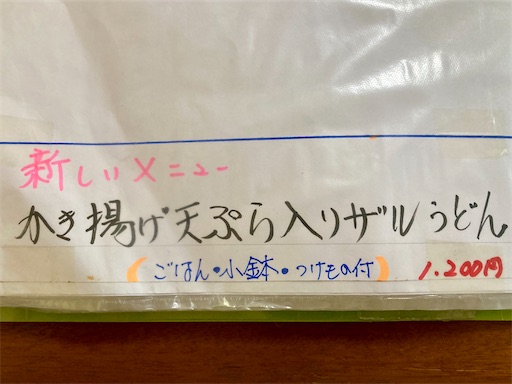 新しいメニュー
かき揚げ天ぷら入りザルうどん
(ごはん・小鉢・つけもの付) 1.200円